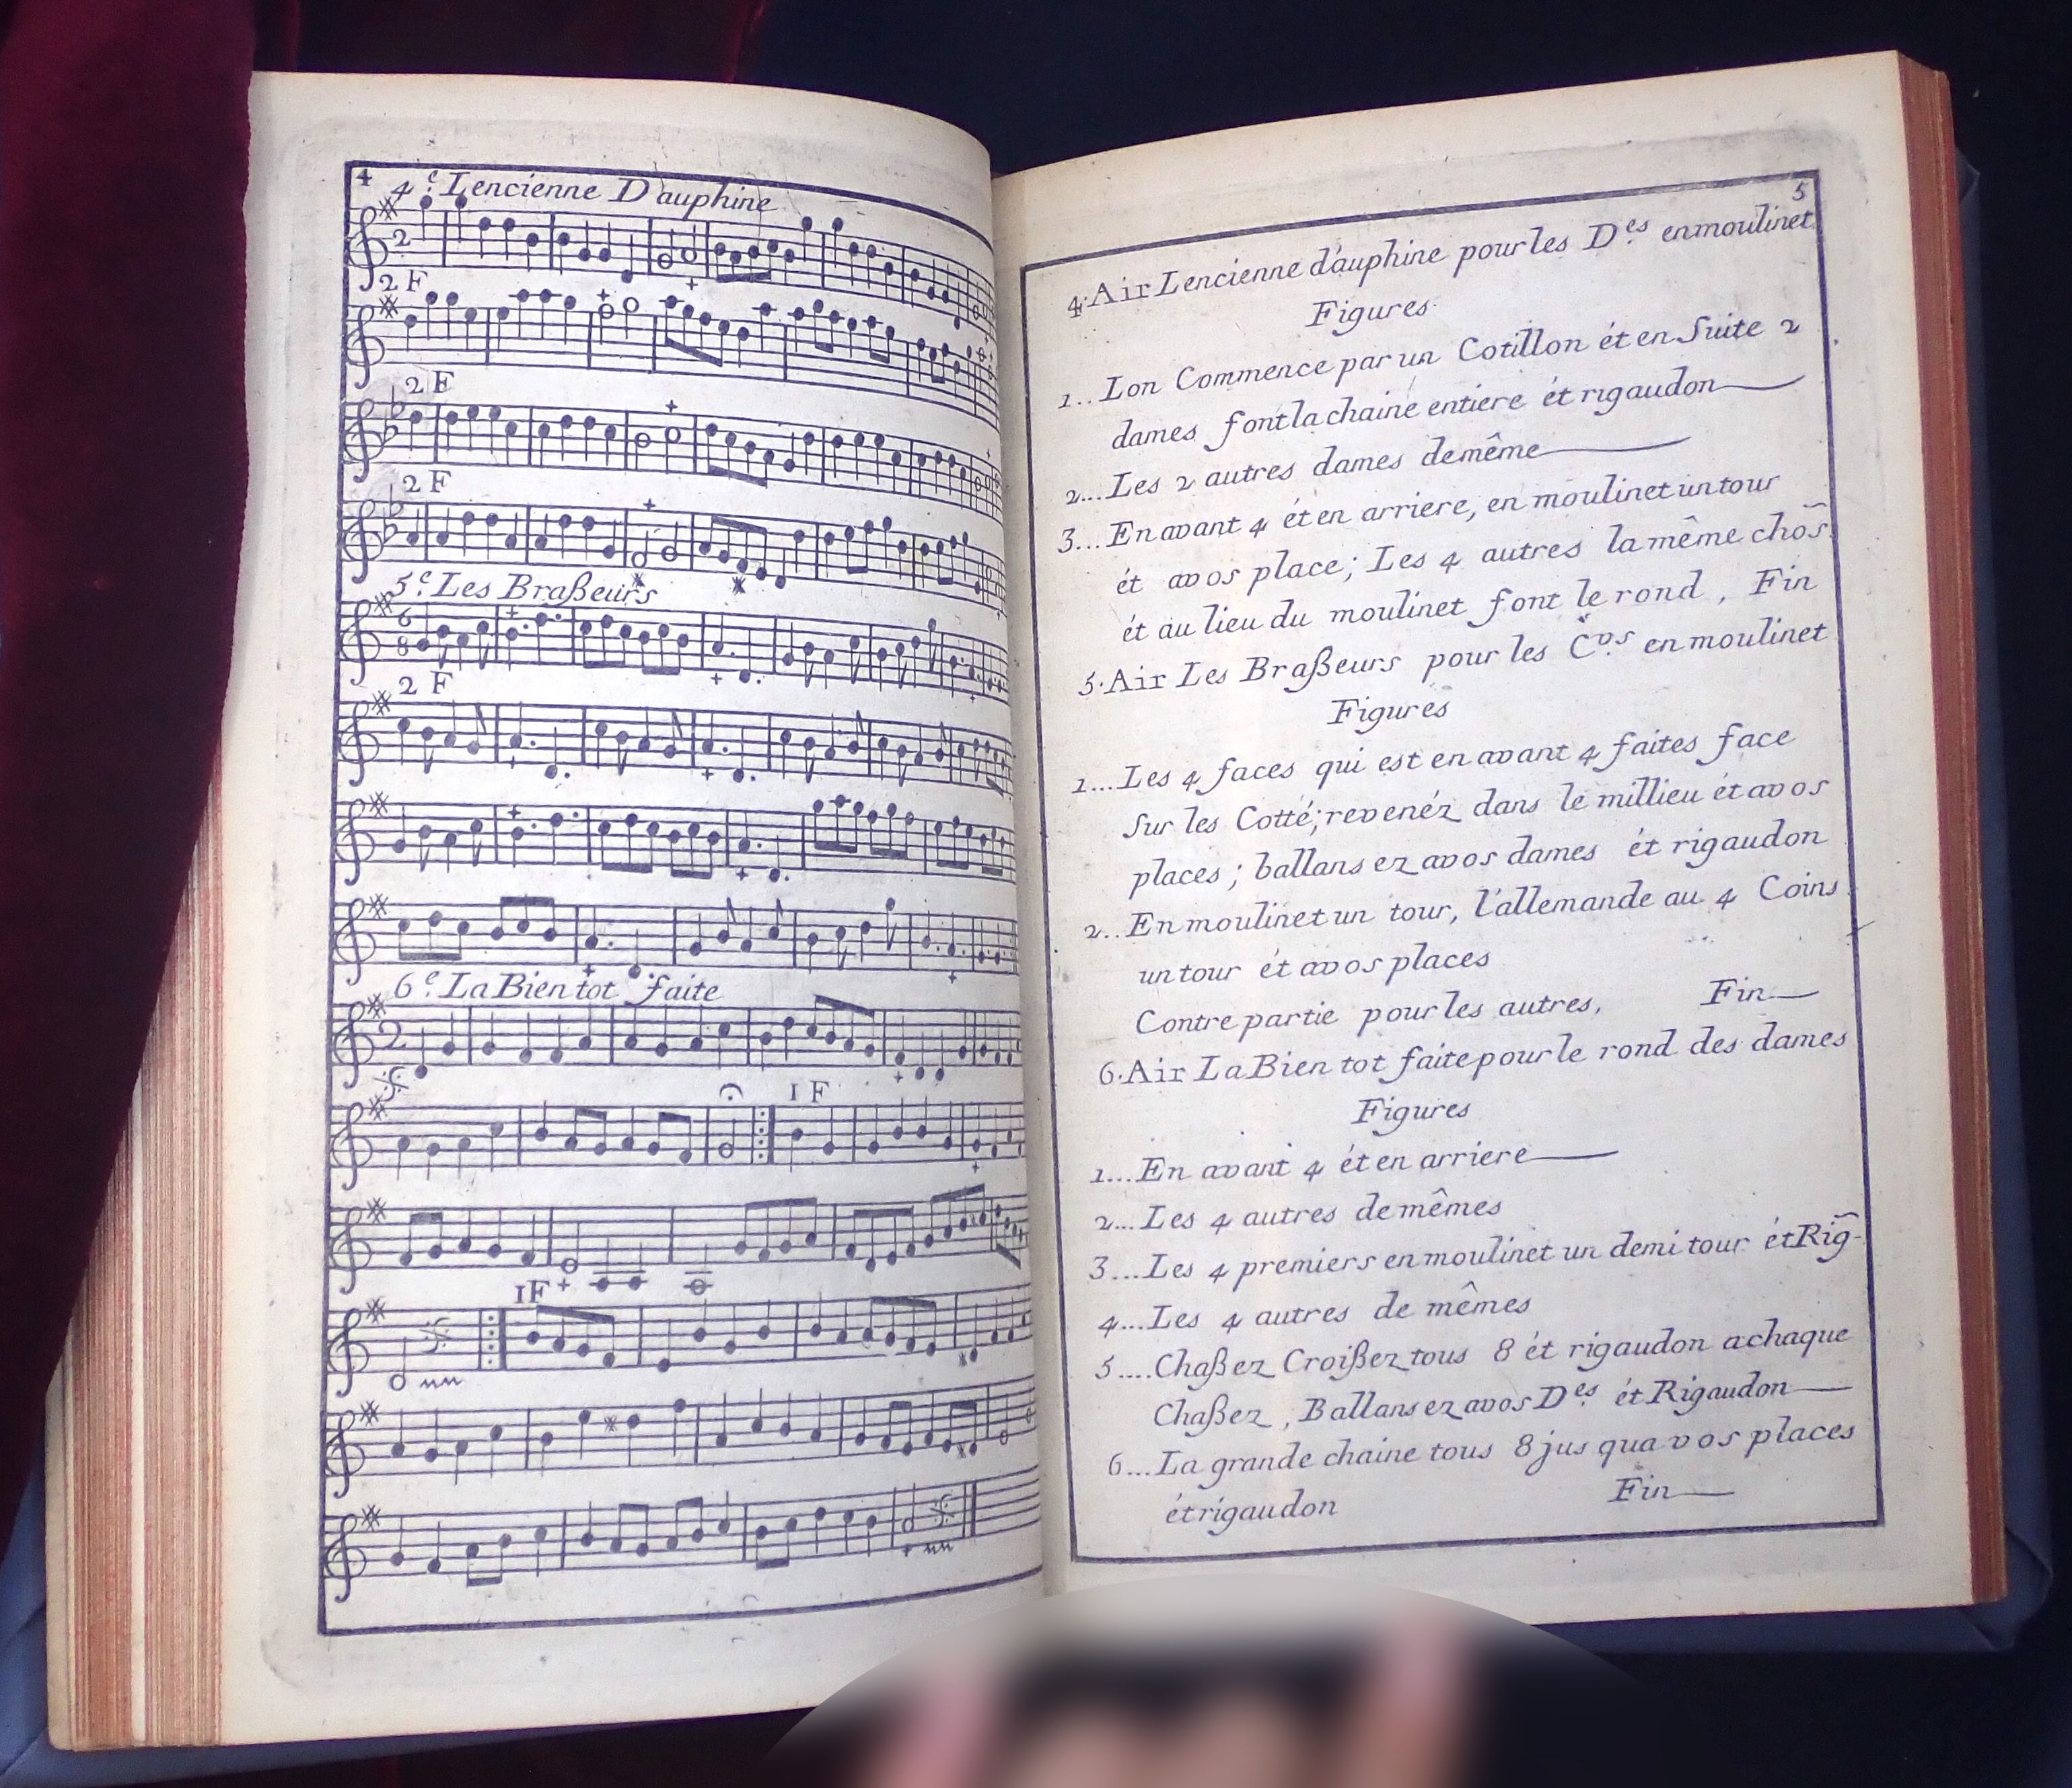 4
4.e Lencienne Dauphine
2
2 F
2 F
2 F
5.e Les Braßeurs
6
8
2 F
6.e La Bien tot faite
2
1 F
1F
5
4. Air Lencienne d'auphine pour les D.es en moulinet
Figures.
1... Lon Commence par un Cotillon ét en Suite 2
dames font la chaine entiere ét rigaudon
2... Les 2 autres dames demême
3... En avant 4 ét en arriere, en moulinet un tour
ét avos place; Les 4 autres la même chõs.
ét au lieu du moulinet font le rond, Fin
5. Air Les Braßeurs pour les C.vs en moulinet
Figures
1... Les 4 faces qui est en avant 4 faites face
Sur les Cotté; revenéz dans le millieu ét avos
places; ballansez avos dames ét rigaudon
2.. En moulinet un tour, l'allemande au 4 Coins
un tour ét avos places
Contre partie pour les autres, Fin
6. Air La Bien tot faite pour le rond des dames
Figures
1... En avant 4 ét en arriere
2... Les 4 autres demêmes
3... Les 4 premiers en moulinet un demi tour ét Rig̃-
4... Les 4 autres de mêmes
5.... Chaßez Croißez tous 8 ét rigaudon achaque
Chaßez, Ballansez avos D.es ét Rigaudon
6... La grande chaine tous 8 jus qua vos places
ét rigaudon Fin